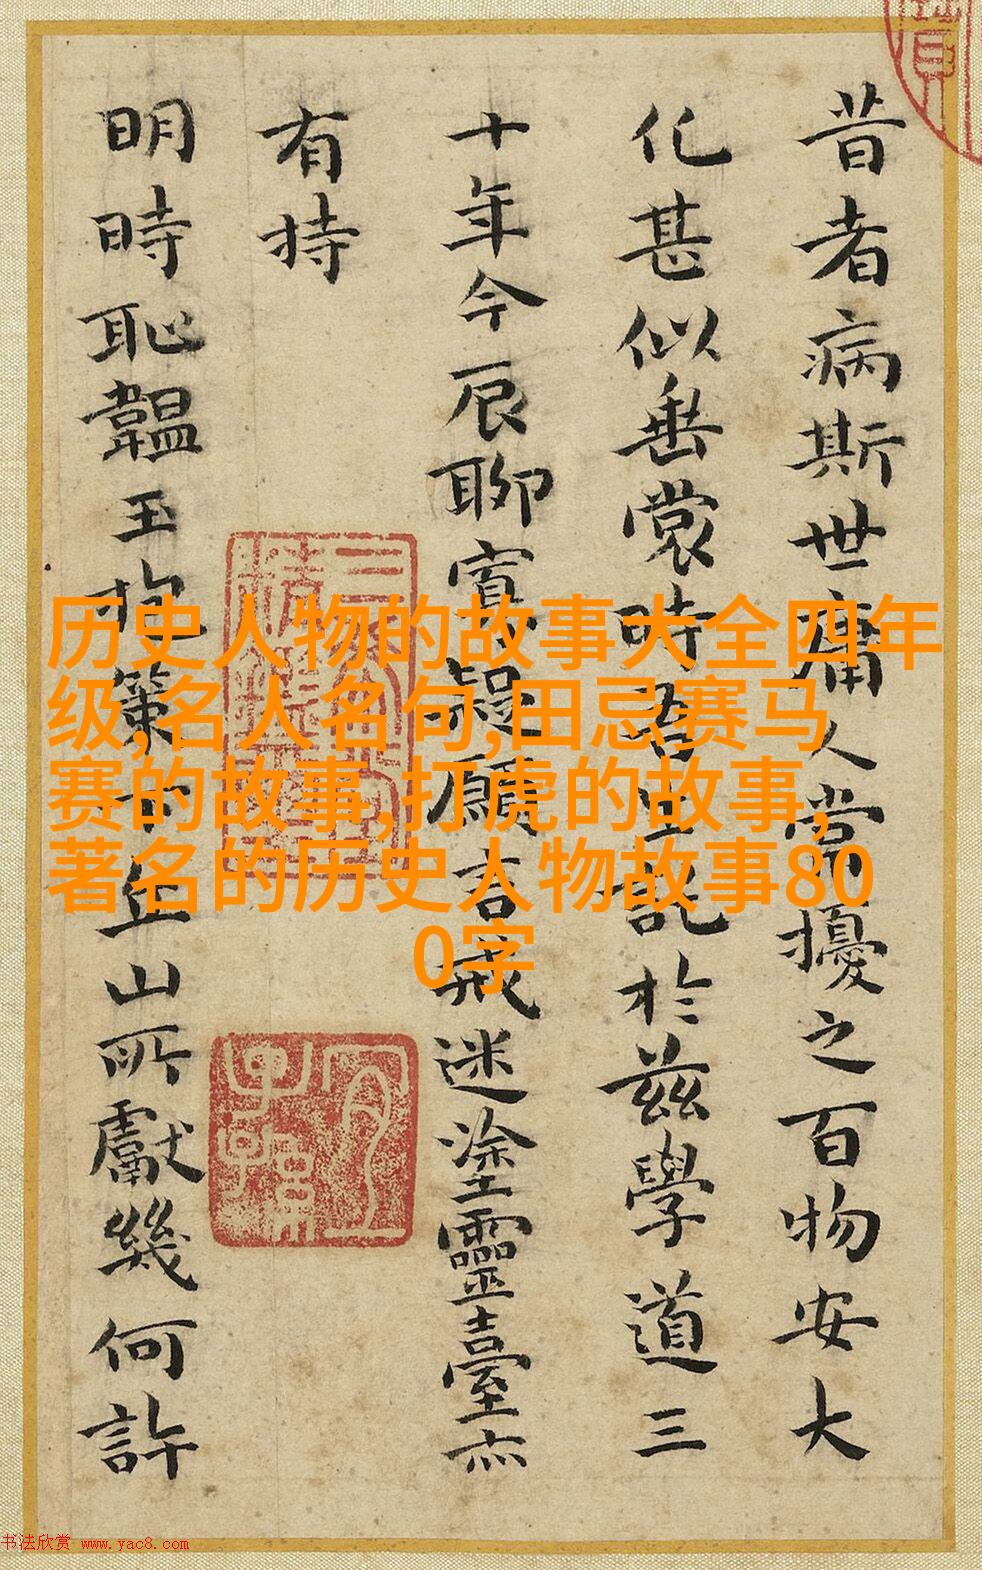 昔者病斯世庸人常擾之百物安大
化甚似垂裳時吾生託於茲學道三
十年今辰聊寬疑願言戒迷塗靈臺亦
有持
明時恥韞玉抱策丘山所獻幾何許
历史人物的故事大全四年
级,名人名句,田忌赛马
赛的故事,打虎的故事,
著名的历史人物故事80
0字
书法欣赏 www.yac8.com